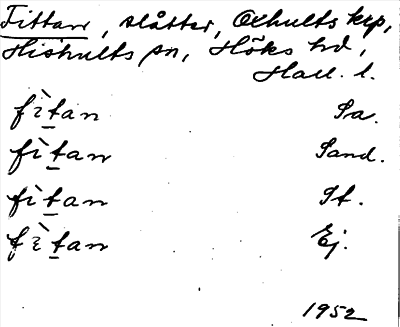 Fittan, slåtter, Oxhults krp,
Hishults sn, Höks hd,
Hall. l.
fìtan Sa.
fìtan Sand.
fìtan St.
fìtan Ej.
1952